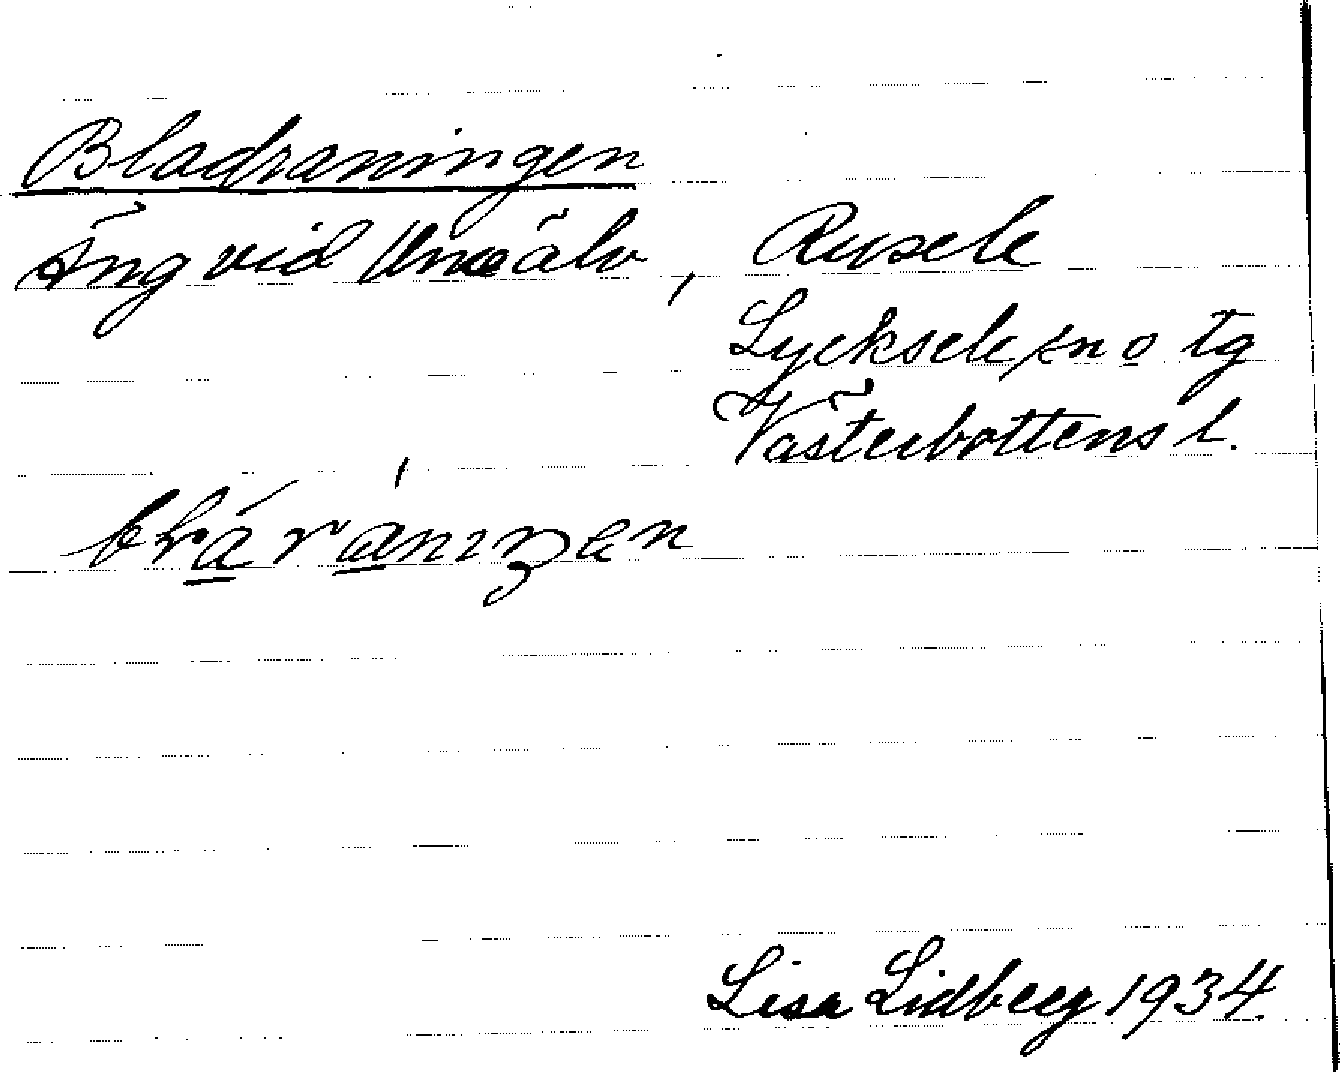 Bladraningen
Äng vid Umeälv, Rusele
Lycksele sn o tg
Västerbottens l.
Lisa Lidberg 1934